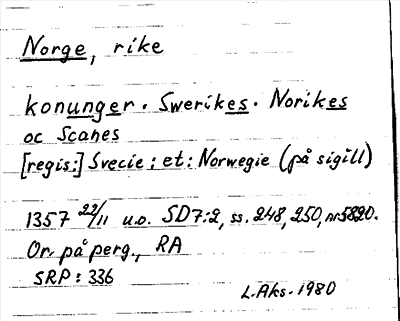 Norge, rike
konunger. Swerikes. Norikes
oc Scanes
[regis:] Svecie: et: Norwegie (på sigill)
1357 22/11 u.o. SD7:2, ss. 248, 250, nr5820.
Or. på perg., RA
SRP: 336
L.Aks. 1980